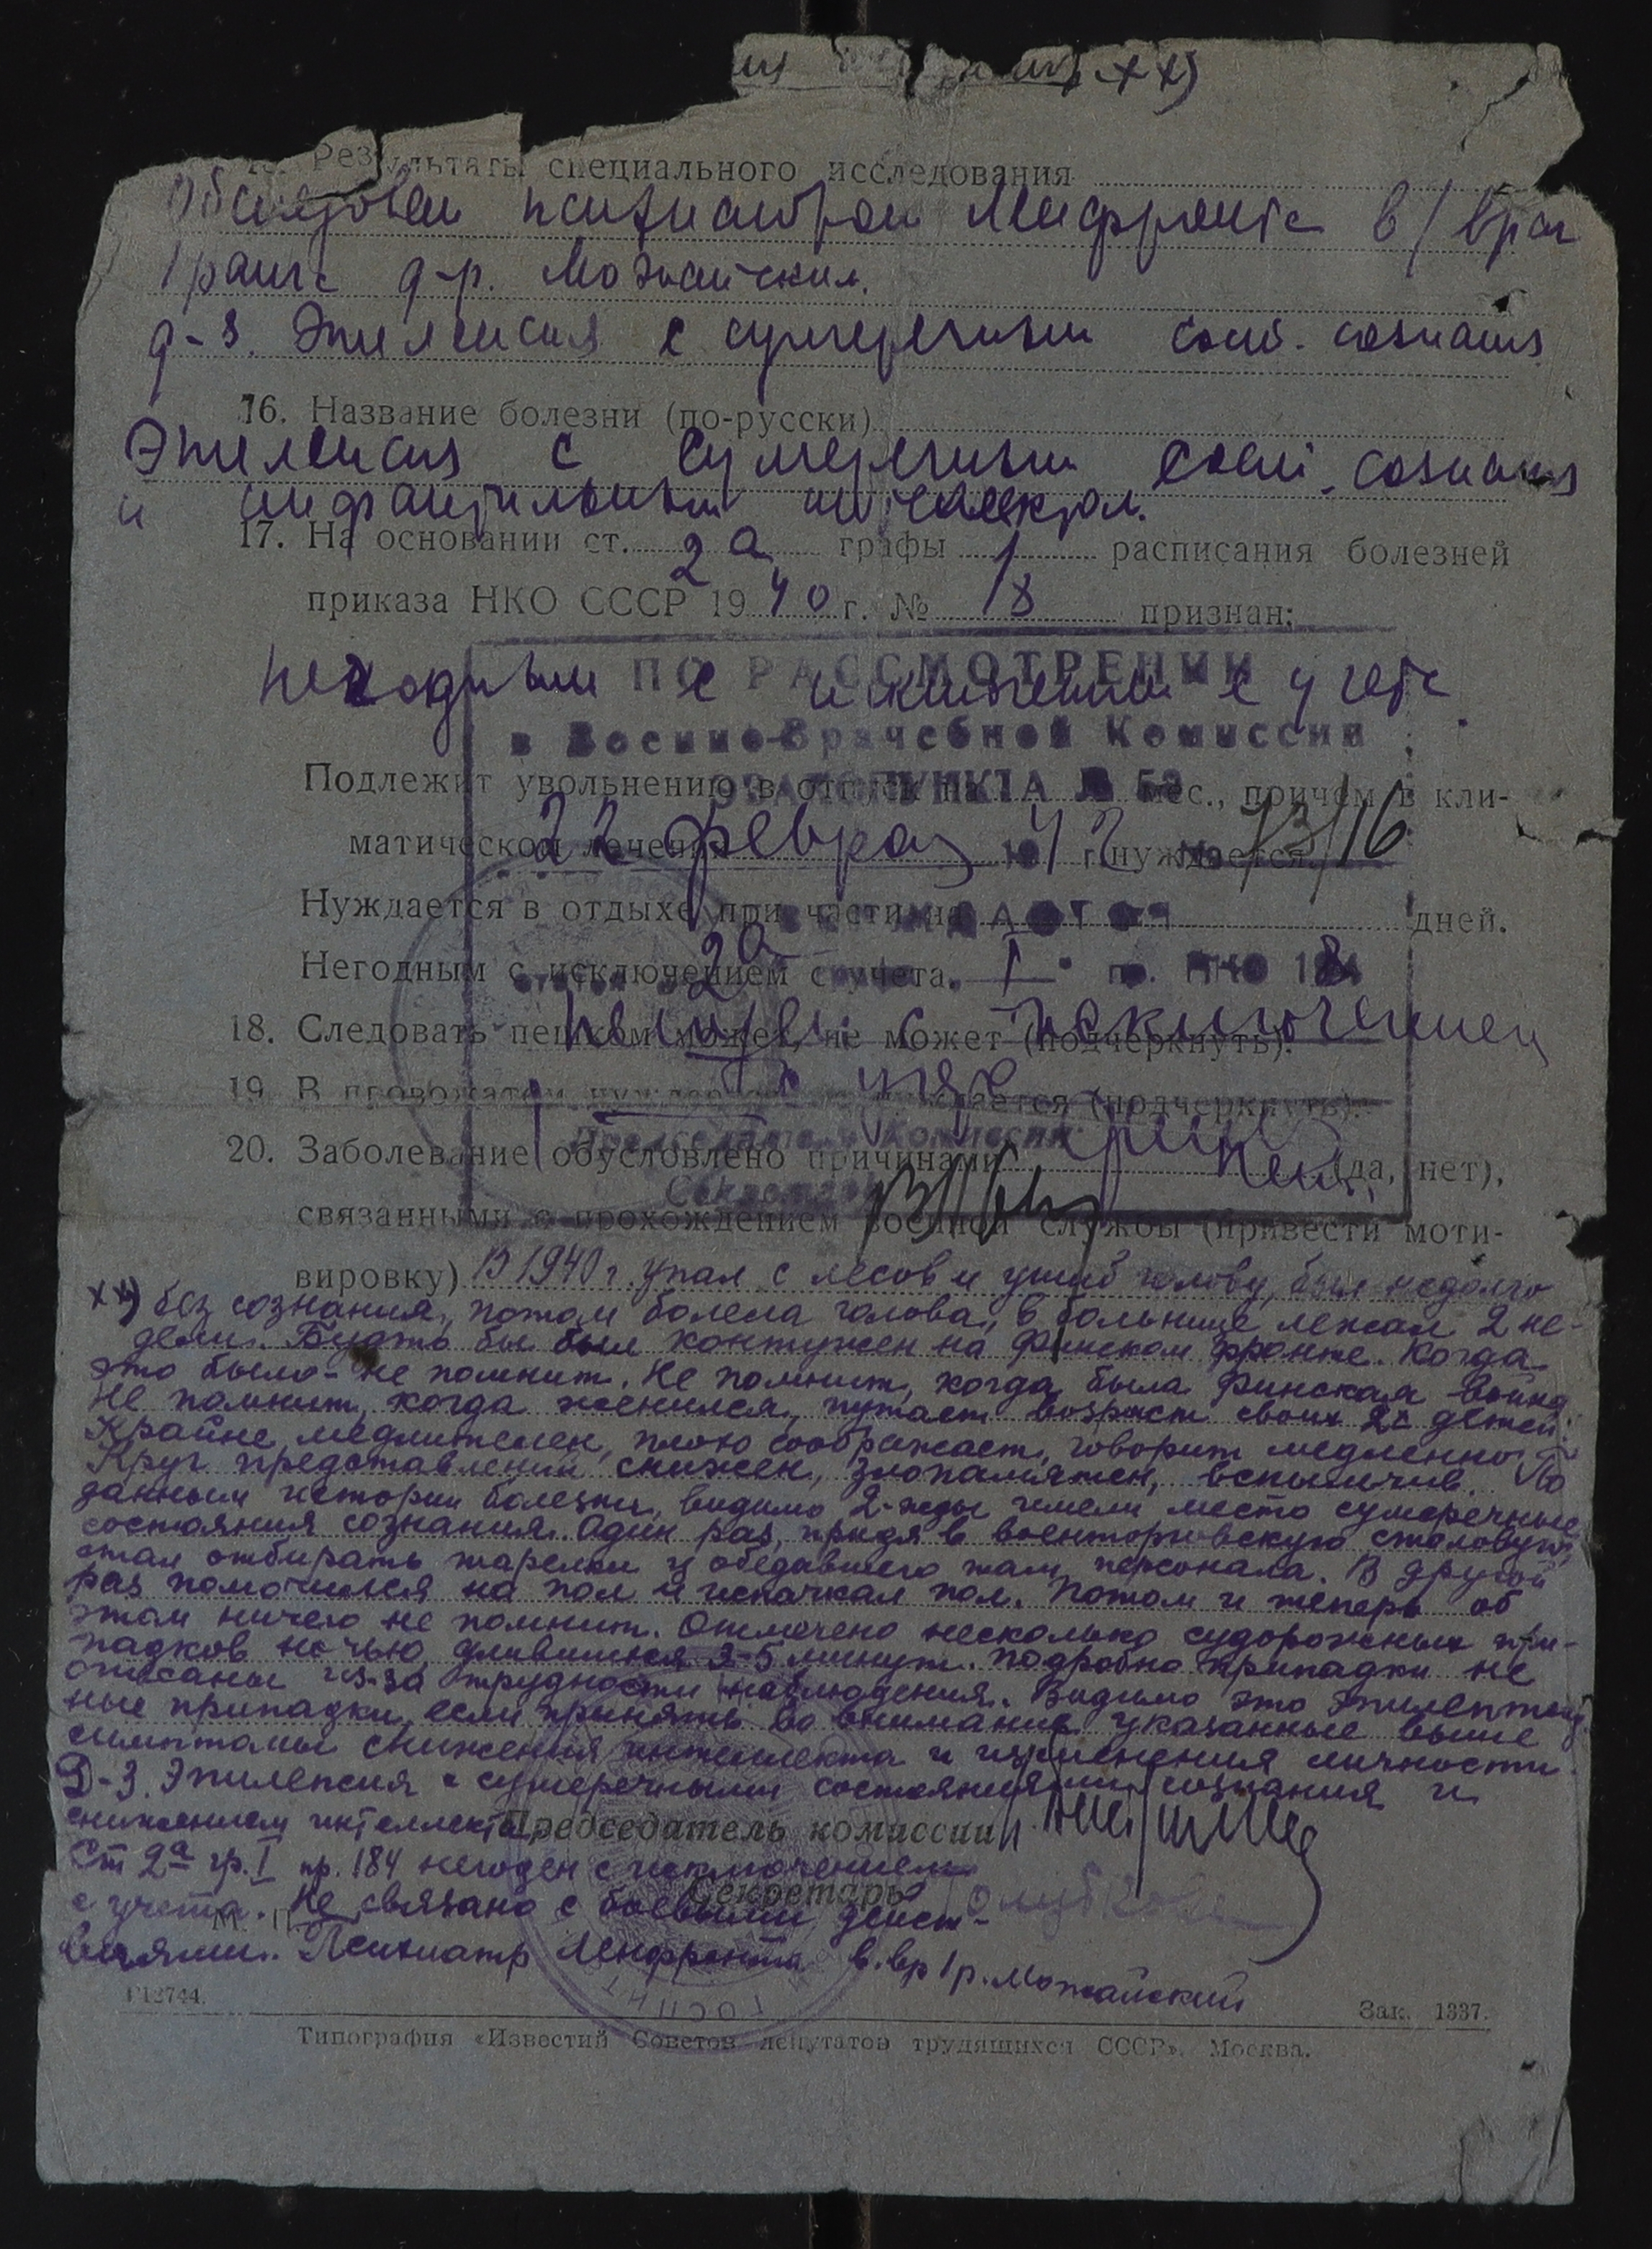 15. Результаты специального исследования
Обследован психиатром Ленфронта в/врач
1 ранга д-р. Можайским.
д-з. Эпилепсия с сумеречным сост. сознания
16. Название болезни (по-русски)
Эпилепсия с сумеречным сост. сознания
и инфантильным интеллектом.
17. На основании ст. 2а графы 1 расписания болезней
приказа НКО СССР 1940 г. № 18 признан:
негодным с исключением с учета
ПО РАССМОТРЕНИИ
в Военно-Врачебной Комиссии
Подлежит увольнению в отпуск на мес., причем в кли-
ЭВАКОПУНКТА № 53
матическом лечении нуждается.
22 феврал 1942 г. № 73/16
Нуждается в отдыхе при части на дней.
Негодным с исключением с учета.
2а I пр. НКО 184
18. Следовать пешком может, не может (подчеркнуть).
негоден с исключением
с учета
19. В провожатом нуждается, не нуждается (подчеркнуть).
Председатель Комиссии
20. Заболевание обусловлено причинами нет (да, нет),
Секретарь
связанными с прохождением военной службы (привести моти-
вировку) В 1940 г. упал с лесов и ушиб голову, был недолго
хх) без сознания, потом болела голова, в больнице лежал 2 не-
дели. Будто бы был контужен на Финском фронте. Когда
это было - не помнит. Не помнит, когда была Финская война
Не помнит, когда женился, путает возраст своих 2х детей.
Крайне медлителен, плохо соображает, говорит медленно.
Круг представлений снижен, злопамятен, вспыльчив. По
данным истории болезни, видимо 2-жды имели место сумеречные
состояния сознания. Один раз, придя в военторговскую столовую,
стал отбирать тарелки у обедавшего там персонала. В другой
раз помочился на пол и испачкал пол. Потом и теперь об
этом ничего не помнит. Отмечено несколько судорожных при-
падков ночью, длившихся 2-5 минут. Подробно припадки не
описаны из-за трудности наблюдения. Видимо это эпилептич-
ные припадки, если принять во внимание указанные выше
симптомы снижения интеллекта и изменения личности.
Д-з. Эпилепсия с сумеречными состояниями сознания и
снижением интеллекта.
Председатель комиссии
Ст 2а гр. I пр. 184 негоден с исключением
Секретарь
с учета. Не связано с боевыми дейст-
М. П.
виями. Психиатр Ленфронта в.вр 1 р. Можайский
Г12744. Зак. 1337.
Типография «Известий Советов депутатов трудящихся СССР». Москва.